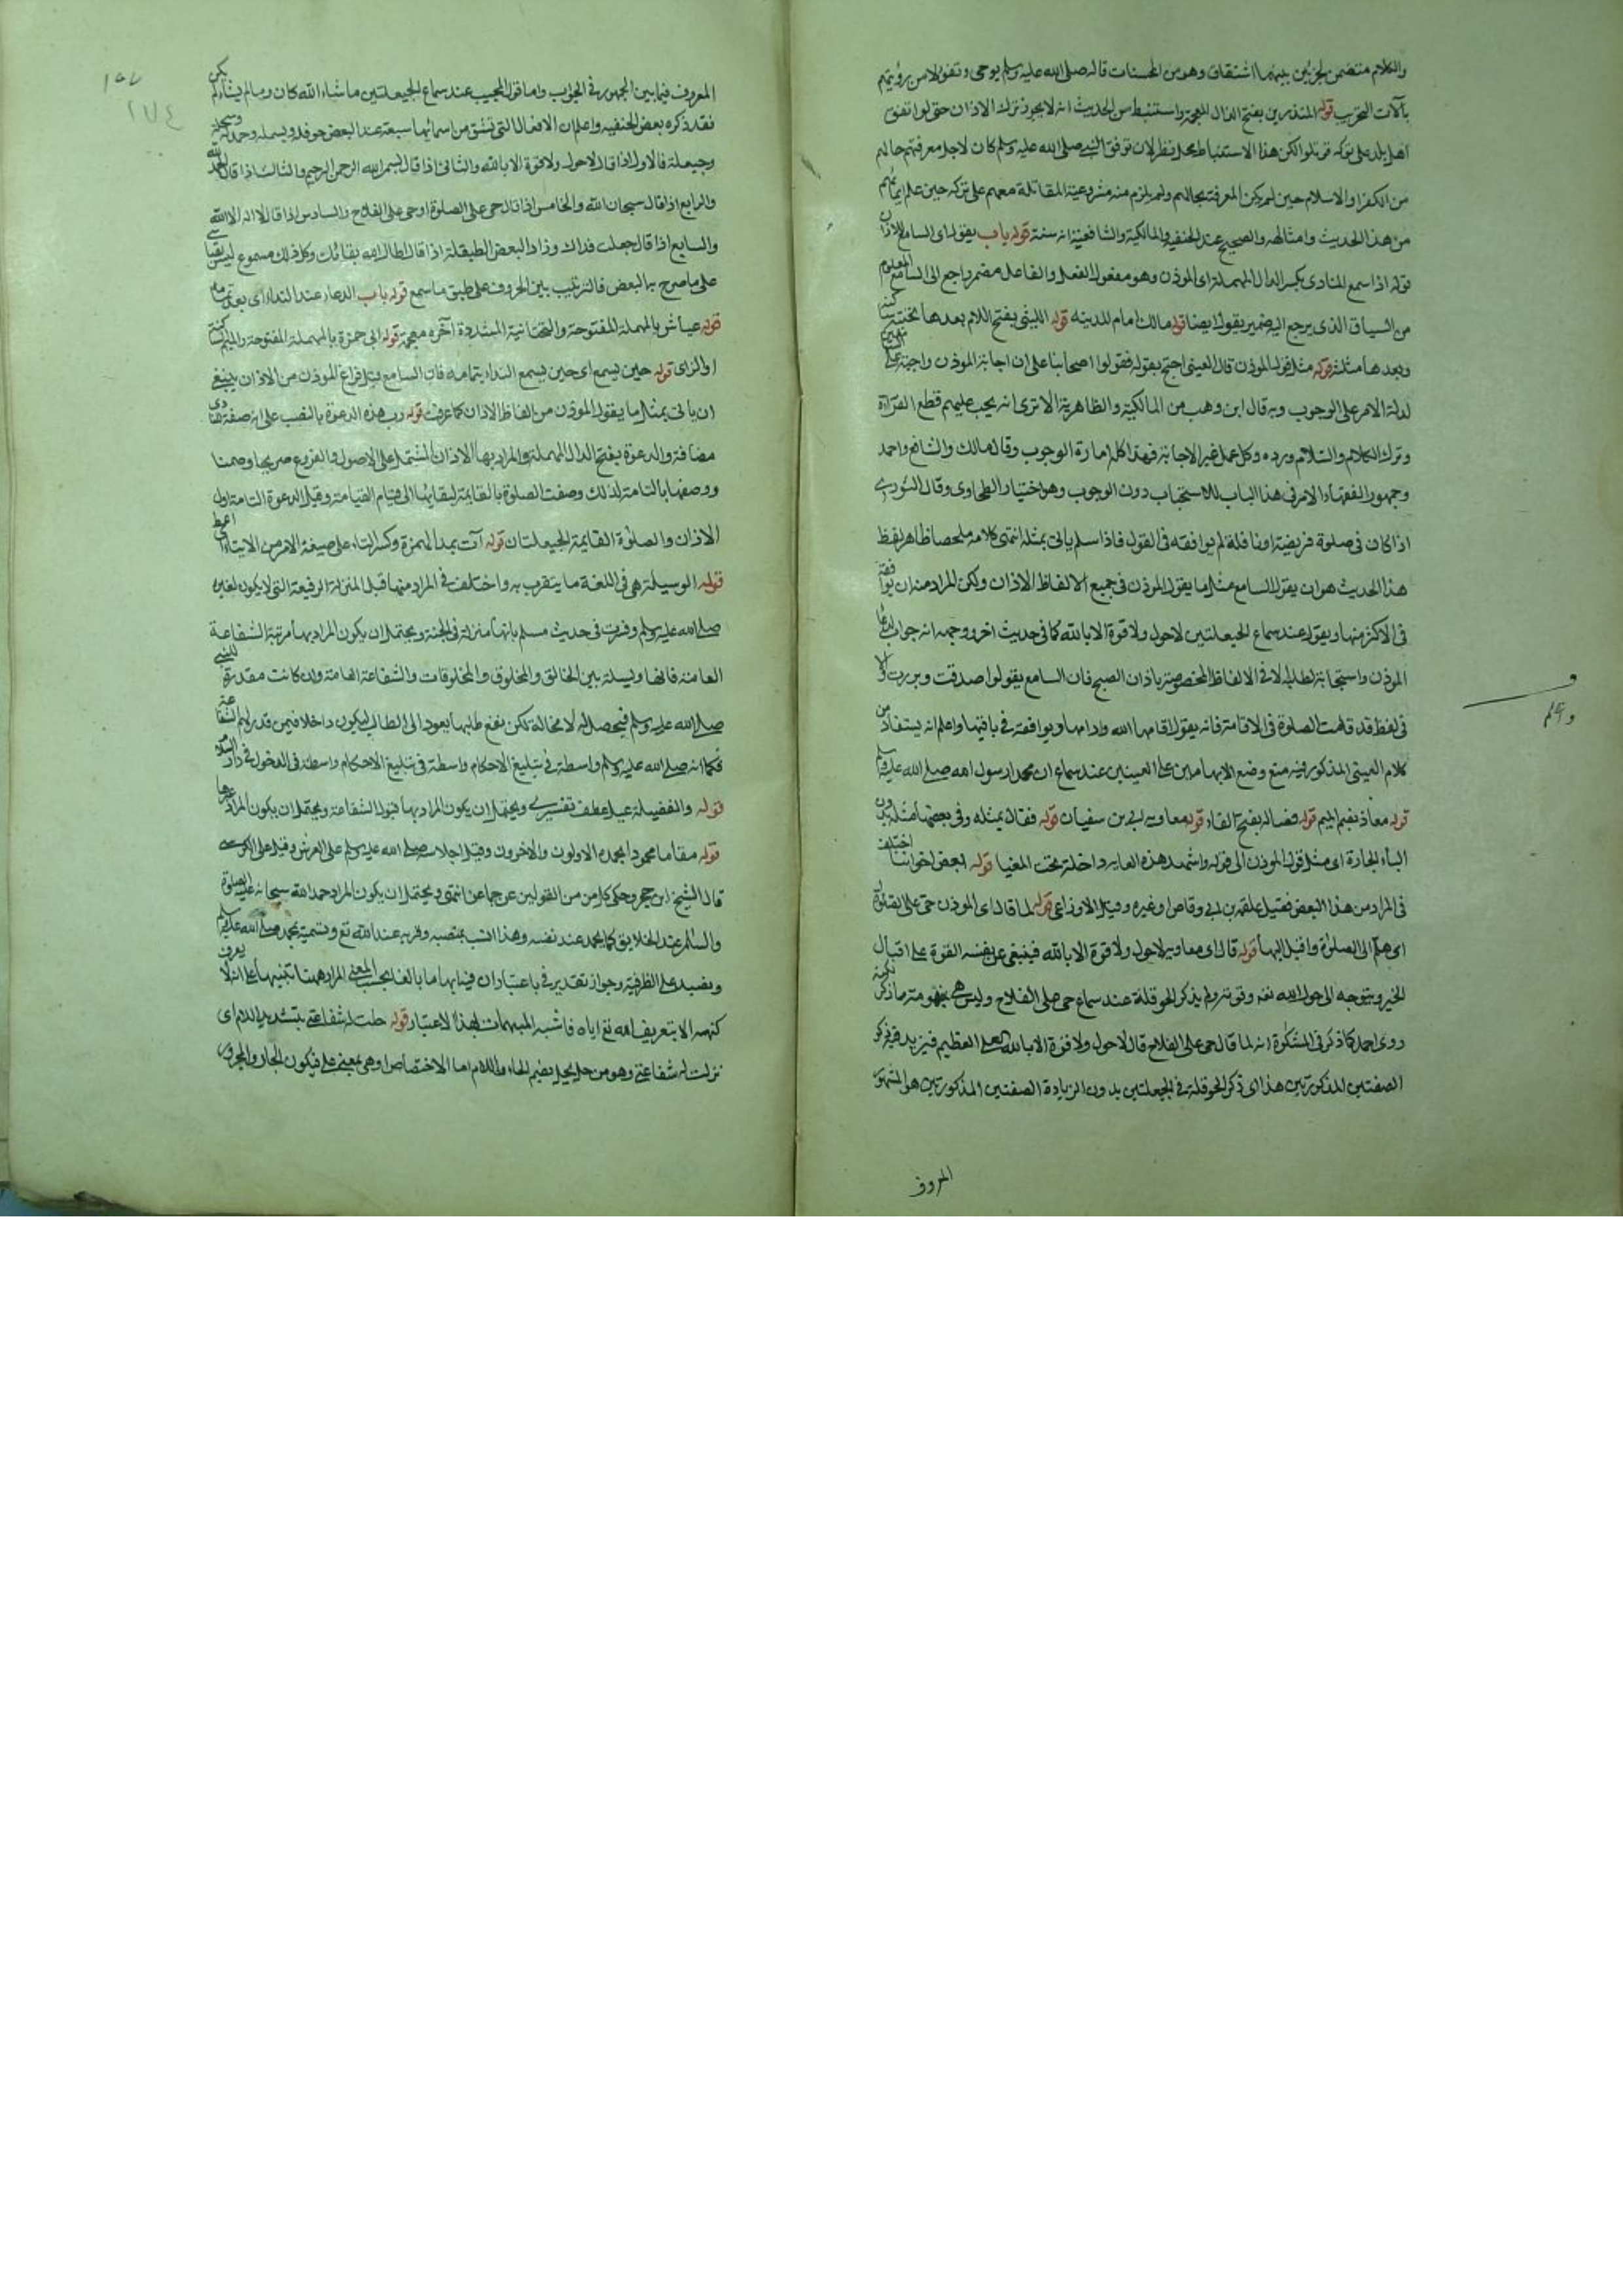 والكلام متضمن لجزئين بينهما اشتقاق وهو من المحسنات قاله صلى الله عليه وسلم بوحى وتفولا من رؤيتهم
بآلات التخريب قوله المنذرين بفتح الذال المعجمة واستنبط من الحديث انه لا يجوز ترك الاذان حتى لو اتفق
اهل بلد على تركه قوتلوا لكن هذا الاستنباط محل نظر لان توقف النبى صلى الله عليه وسلم كان لاجل معرفتهم حالهم
من الكفر او الاسلام حين لم يكن المعرفة بحالهم ولم يلزم منه مشروعية المقاتلة معهم على تركه حين علم ايمانهم
من هذا الحديث وامثاله والصحيح عند الحنفية والمالكية والشافعية انه سنة قوله باب يقول اى السامع للاذان
قوله اذا سمع المنادى بكسر الدال المهملة اى الموذن وهو مفعول الفعل والفاعل مضمر راجع الى السامع المعلوم
من السياق الذى يرجع اليه ضمير يقول ايضا قوله مالك امام المدينه قوله الليثى بفتح اللام بعدها تحتية ساكنة
وبعدها مثلثة قوله مثل قول الموذن قال العينى احتج بقوله فقولوا اصحابنا على ان اجابة الموذن واجبة على السامعين
لدلة الامر على الوجوب وبه قال ابن وهب من المالكية والظاهرية الا ترى انه يجب عليهم قطع القراءة
وترك الكلام والسلام ورده وكل عمل غير الاجابة فهذا كله امارة الوجوب وقال مالك والشافعى واحمد
وجمهور الفقهاء الامر فى هذا الباب للاستحباب دون الوجوب وهو اختيار الطحاوى وقال الثورى
اذا كان فى صلوة فريضة او نافلة لم يوافقه فى القول فاذا سلم ياتى بمثله انتهى كلامه ملخصا ظاهر لفظ
هذا الحديث هو ان يقول السامع مثل ما يقول الموذن فى جميع الالفاظ الاذان ولكن المراد منه ان يوافقه
فى الاكثر منها ويقول عند سماع الحيعلتين لاحول ولاقوة الا بالله كما فى حديث اخر ووجهه انه جواب لدعا
الموذن واستجابة لطلبه لا فى الالفاظ المخصوصة باذان الصبح فان السامع يقول صدقت وبررت والا
فى لفظ قد قامت الصلوة فى الاقامة فانه يقول اقامها الله وادامها ويوافقه فى باقيها واعلم انه يستفاد من
كلام العينى المذكور فيه منع وضع الابهامين على العينين عند سماع ان محمدا رسول الله صلى الله عليه وسلم
قوله معاذ بضم الميم قوله فضاله بفتح الفاء قوله معاوية بن ابى سفيان قوله فقال بمثله وفى بعضها مثله بدون
الباء الجارة اى مثل قول الموذن الى قوله واشهد هذه الغاية داخلة تحت المغيا قوله بعض اخواننا اختلف
فى المراد من هذا البعض فقيل علقمة بن ابى وقاص او غيره وقيل الاوزاعى قوله لما قال اى الموذن حى على الصلوة
اى هلم الى الصلوة واقبل اليها قوله قال اى معاويه لاحول ولاقوة الا بالله فينبغى عن نفسه القوة على اقبال
الخير ويتوجه الى حول الله
روى احمد كما ذكر فى المشكوة انه لما قال حى على الفلاح قال لاحول ولا قوة الا بالله العلى العظيم فيزيد
الصفتين المذكورتين هذا اى ذكر الحوقلة فى الحيعلتين بدون الزيادة الصفتين المذكورتين هو المشهور
المعروف
المعروف فيما بين الجمهور فى الجواب واما قول المجيب عند سماع الحيعلتين ما شاء الله كان وما لم يشاء لم يكن
فقد ذكره بعض الحنفيه واعلم ان الافعال التى تشتق من اسمائها سبعة عند البعض حوقلة وبسملة وحمدلة وسبحلة
وحيعلة فالاول اذا قال لاحول ولاقوة الا بالله والثانى اذا قال بسم الله الرحمن الرحيم والثالث اذا قال الحمد لله
والرابع اذا قال سبحان الله والخامس اذا قال حى على الصلوة او حى على الفلاح والسادس اذا قال لا اله الا الله
والسابع اذا قال جعلت فداك وزاد البعض الطبقلة اذا قال اطال الله بقائك وكل ذلك مسموع ليس بقياسى
على ما صرح به البعض فالترتيب بين الحروف على طبق ما سمع قوله باب الدعاء عند النداء اى بعد تمامه
قوله عياش بالمهملة المفتوحة والتحتانية المشددة آخره معجمة قوله ابى حمزة بالمهملة المفتوحة والميم الساكنة
او الزاى قوله حين يسمع اى حين يسمع النداء بتمامه فان السامع قبل فراغ الموذن من الاذان ينبغى
ان ياتى بمثل ما يقول الموذن من الفاظ الاذان كما عرفت قوله رب هذه الدعوة بالنصب على انه صفة
مضافة والدعوة بفتح الدال المهملة والمراد بها الاذان المشتمل على الاصول والفروع صريحا وضمنا
ووصفها بالتامة لذلك وصفت الصلوة بالقايمة لبقائها الى قيام القيامة وقيل الدعوة التامة اول
الاذان والصلوة القايمة الحيعلتان قوله آت بمد الهمزة وكسر التاء على صيغة الامر من الايتاء اعط
قوله الوسيلة هى فى اللغة ما يتقرب به واختلف فى المراد منها قيل المنزلة الرفيعة التى لا يكون لغير
صلى الله عليه وسلم وفسرت فى حديث مسلم بانها منزلة فى الجنة ويحتمل ان يكون المراد بها مرتبة الشفاعة
العامة فانها وسيلة بين الخالق والمخلوق والمخلوقات والشفاعة العامة وان كانت مقدرة للنبى
صلى الله عليه وسلم فيحصل له لا محالة لكن نفع طلبها يعود الى الطالب ليكون داخلا فيمن قدر لهم الشفاعة
فكما انه صلى الله عليه وسلم واسطة فى تبليغ الاحكام واسطة فى تبليغ الاحكام واسطة فى الدخول فى دار السلام
قوله والفضيلة قيل عطف تفسيرى ويحتمل ان يكون المراد بها قبول الشفاعة ويحتمل ان يكون المراد غيرها
قوله مقاما محمودا يحمده الاولون والاخرون وقيل اجلاسه صلى الله عليه وسلم على العرش وقيل على الكرسى
قال الشيخ ابن حجر وحكى كل من القولين عن جماعة انتهى ويحتمل ان يكون المراد حمد الله سبحانه عليه الصلوة
والسلام عند الخلايق كما يحمد عند نفسه وهذا انسب بمنصبه وقربه عند الله تع وتسميته بمحمد صلى الله عليه وسلم
ونصبه على الظرفية وجواز تقدير فى باعتبار ان فيه ابهاما بالغا بحسب المعنى المراد ههنا تنبيها على انه لا يعرف
كنهه الا بتعريف الله تع اياه فاشبه المبهمات لهذا الاعتبار قوله حلت له شفاعتى بتشديد اللام اى
نزلت له شفاعتى وهو من حل يحل بضم الحاء واللام اما الاختصاص او هى بمعنى على فيكون الجار والمجرور